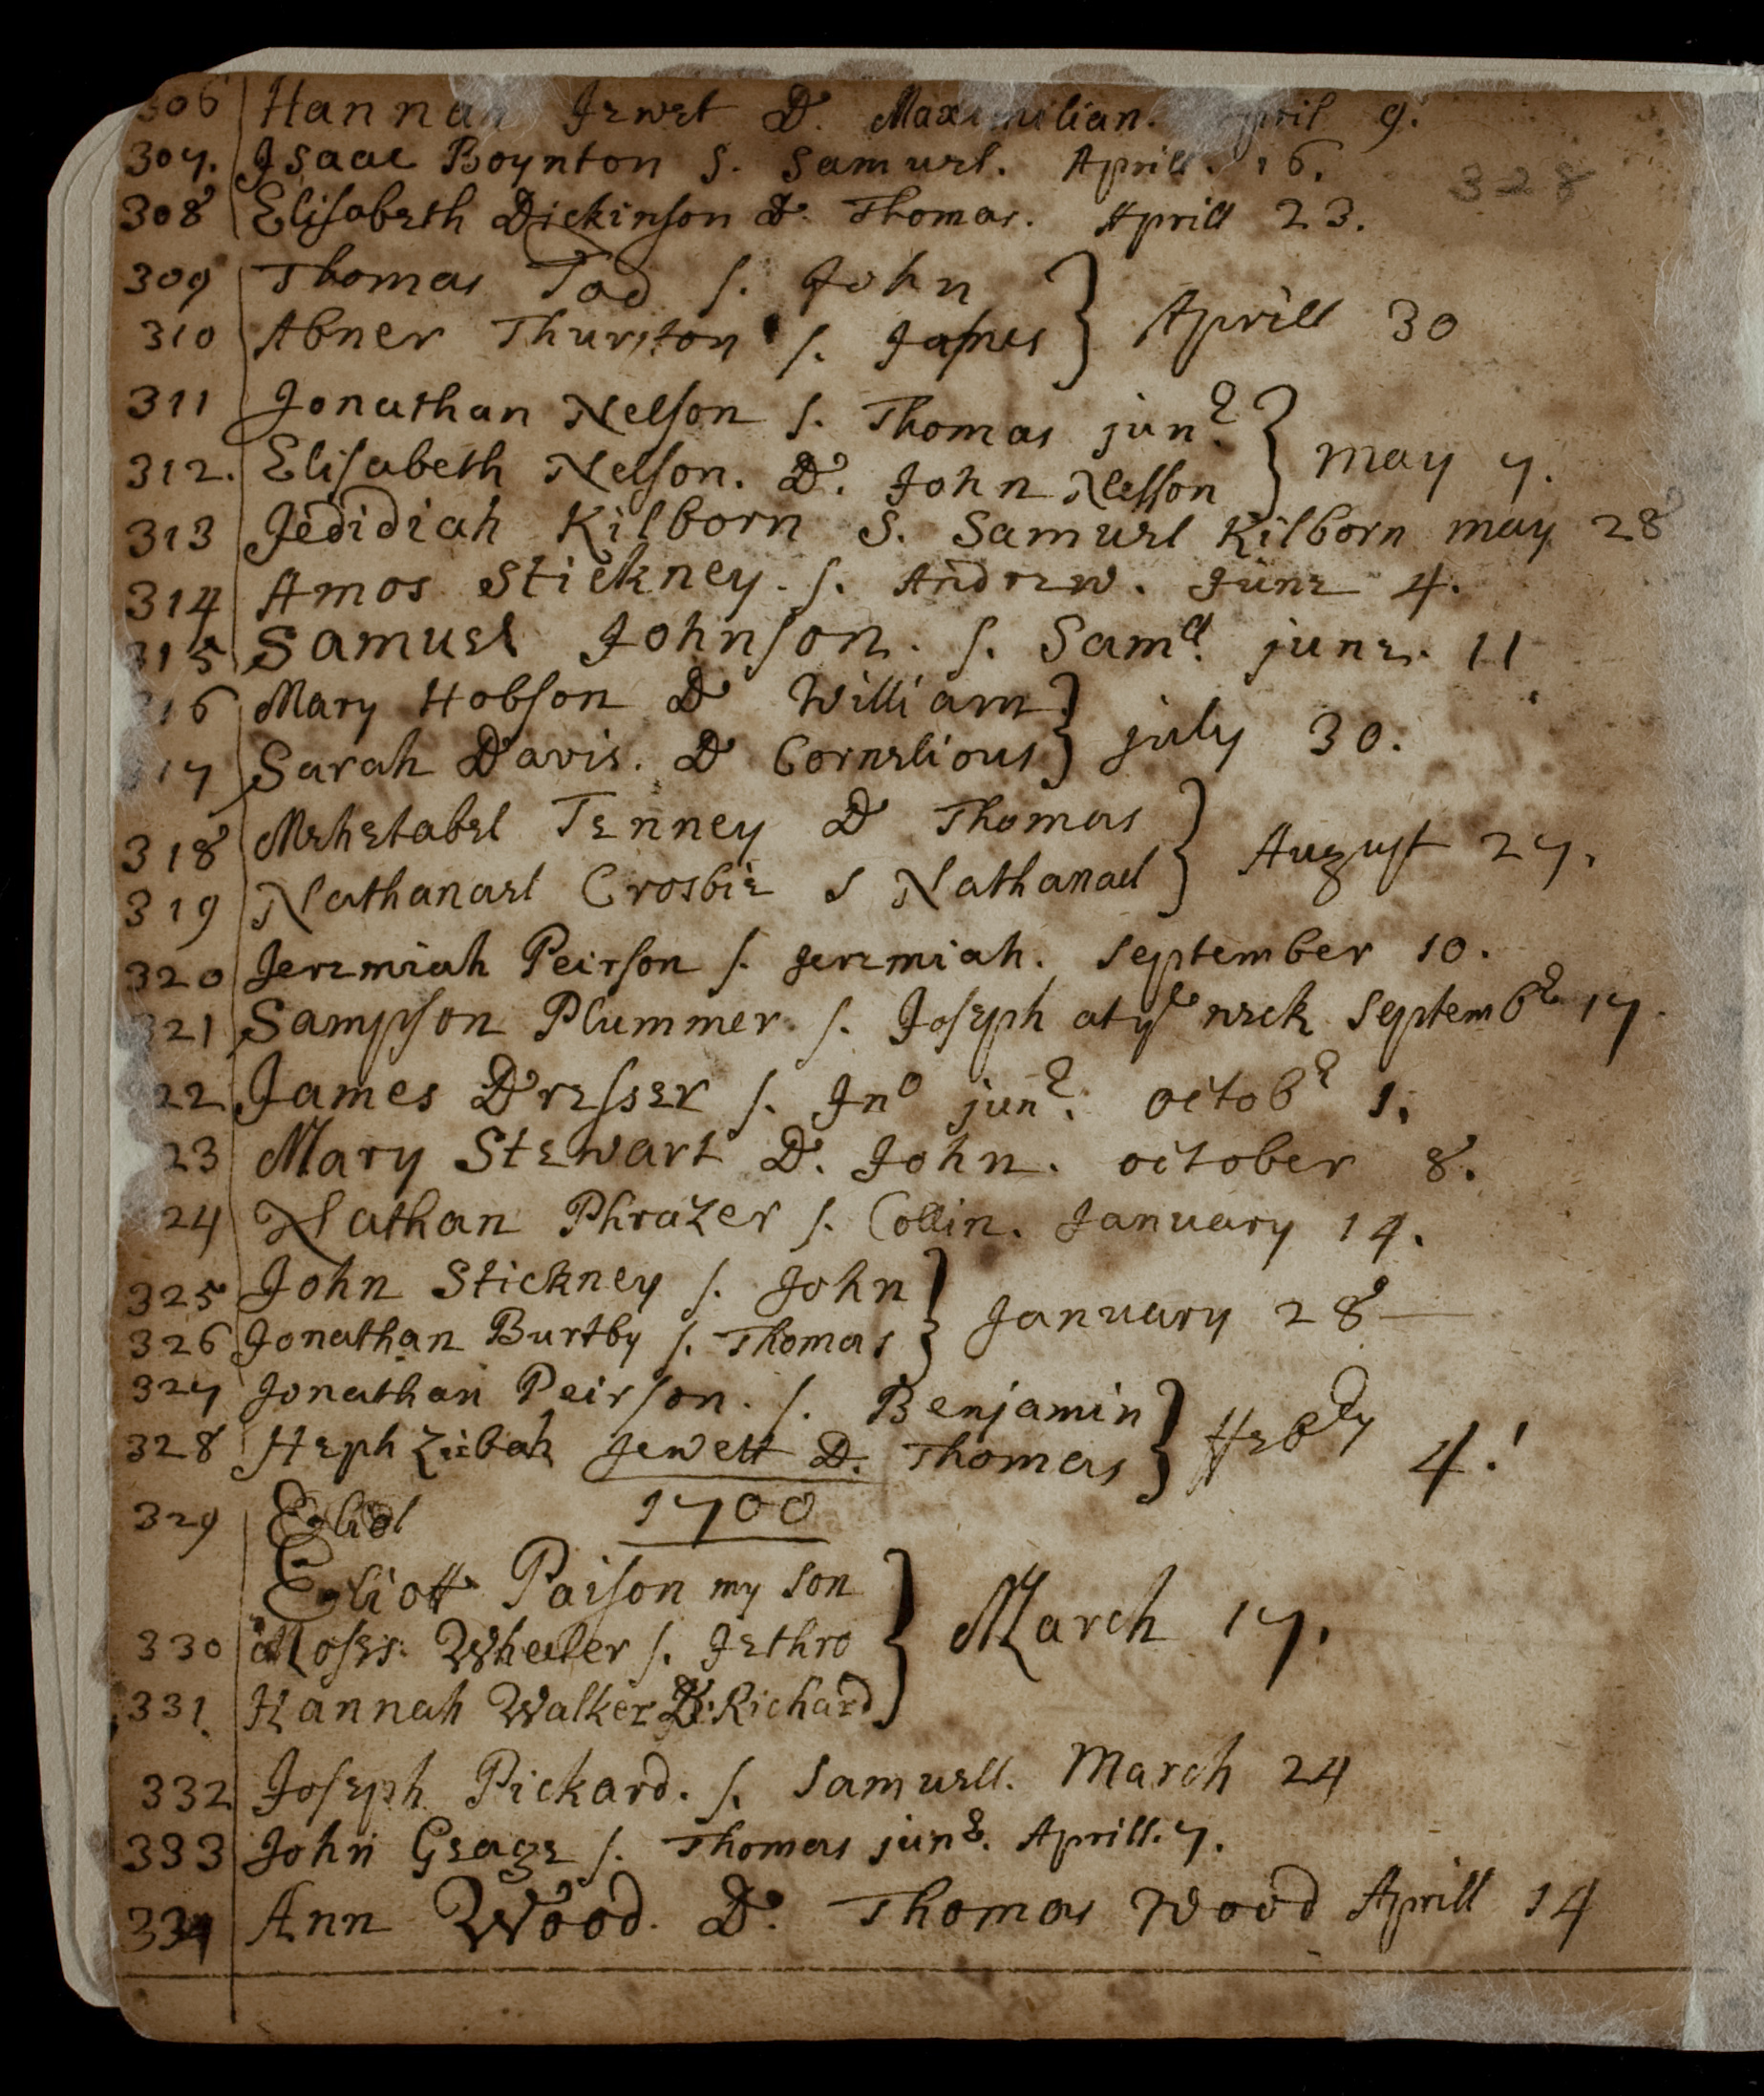 306 Hannah Jewet D. Maximilian. April 9.
307. Isaac Boynton S. Samuel. Aprill. 16.
328
308 Elisabeth Dickinson D. Thomas. Aprill 23.
309 Thomas Tod S. John
310 Abner Thurston S. James } Aprill 30
311 Jonathan Nelson S. Thomas junr.
312. Elisabeth Nelson. D. John Nelson } may 7.
313 Jedidiah Kilborn S. Samuel Kilborn may 28
314 Amos Stickney. S. Andrew. June 4.
315 Samuel Johnson. S. Samll. june. 11
316 Mary Hobson D William
317 Sarah Davis. D Cornelious } july 30.
318 Mehetabel Tenney D Thomas
319 Nathanael Crosbie S Nathanael } August 27.
320 Jeremiah Peirson S. Jeremiah. September 10.
321 Sampson Plummer. S. Joseph at ye neck Septembr 17.
322 James Dresser S. Jno junr. octobr 1.
323 Mary Stewart D. John. october 8.
324 Nathan Phrazer S. Collin. January 14.
325 John Stickney S. John
326 Jonathan Burtby S. Thomas } January 28
327 Jonathan Peirson. S. Benjamin
328 Hephzibah Jewett D. Thomas } Febry 4.
329 Eliot 1700
Eliott Paison my son
330 Moses Wheeler S. Jethro } March 17.
331. Hannah Walker D. Richard
332 Joseph Pickard. S. Samuell. March 24
333 John Geage S. Thomas junr. Aprill. 7.
334 Ann Wood. D. Thomas Wood Aprill 14